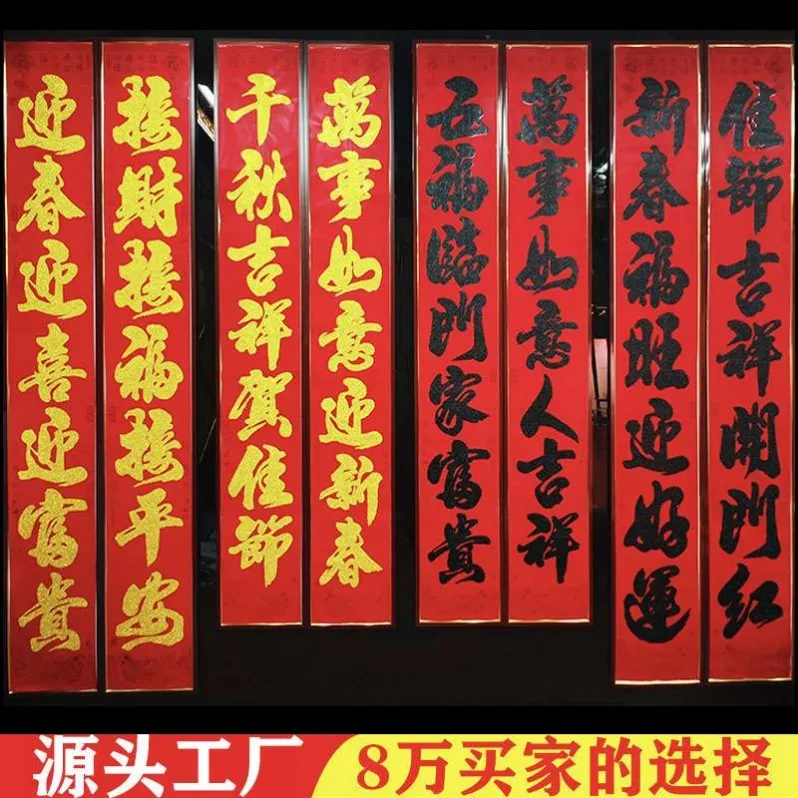 迎春迎喜迎富貴
接財接福接平安
千秋吉祥賀佳節
萬事如意迎新春
五福臨門家富貴
萬事如意人吉祥
新春福旺迎好運
佳節吉祥開門红
源头工厂
8万买家的选择